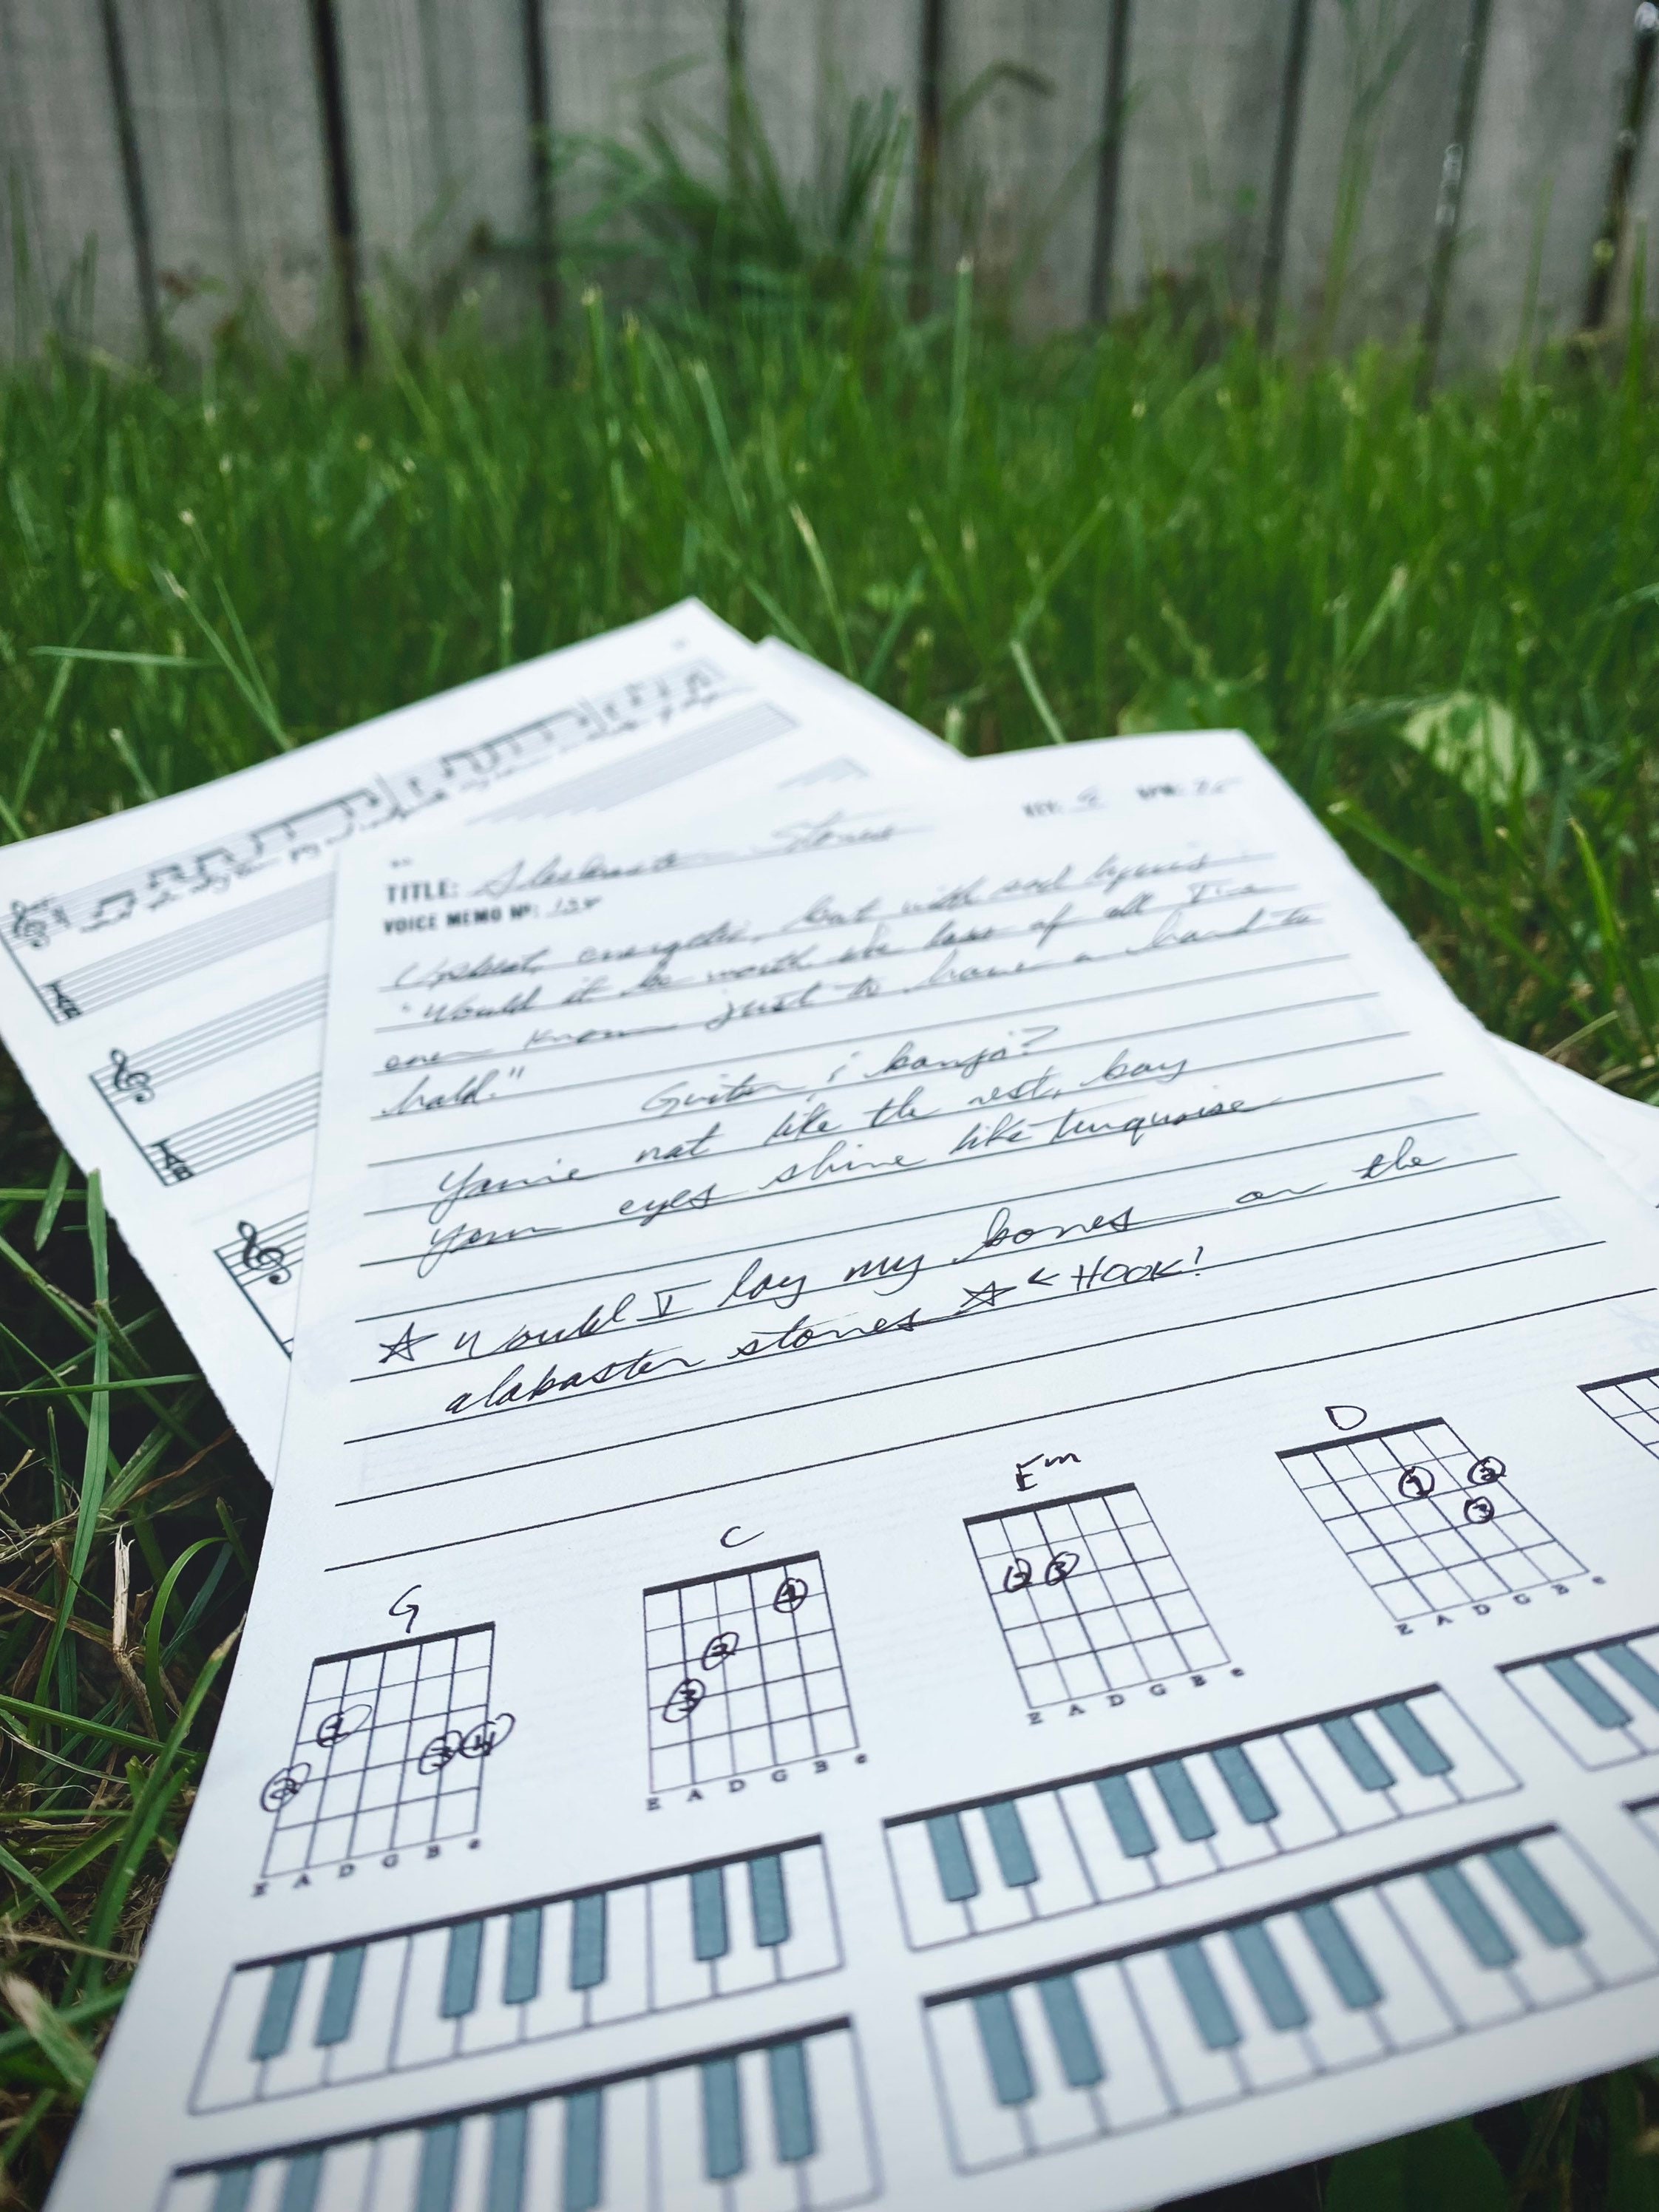 KEY: G BPM:
TITLE: Alabaster Stones
VOICE MEMO Nº:
Upbeat, energetic, but with sad lyrics
"Would it be worth the loss of all I've
ever known just to have a hand to
hold."
Guitar ; banjo?
You're not like the rest, boy
your eyes shine like turquoise
☆ Would I lay my bones on the
alabaster stones ☆ < HOOK!
G C Em D
2 1 3 4
3 2 1
2 3
1 2 3
E A D G B e
E A D G B e
E A D G B e
E A D G B e
TAB
TAB